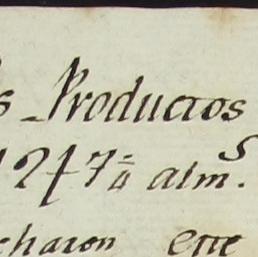 s Productos
1247 1/4 alm.s
charon este